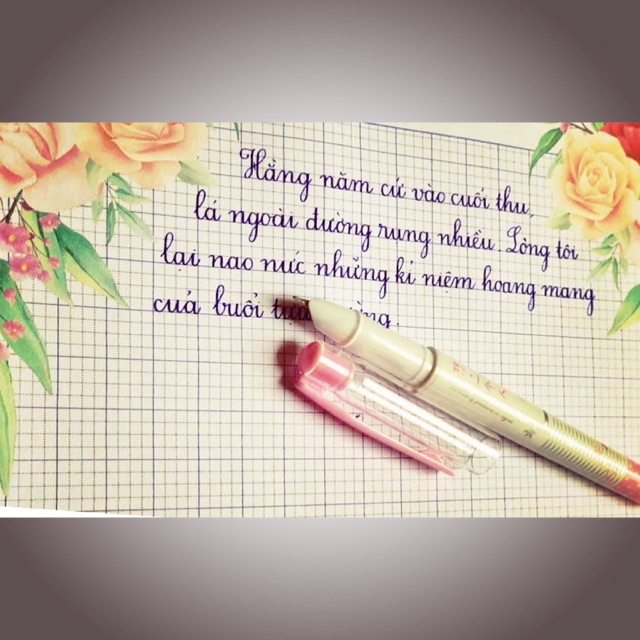 Hằng năm cứ vào cuối thu,
lá ngoài đường rụng nhiều. Lòng tôi
lại nao nức những kỉ niệm hoang mang
cuả buổi tựu